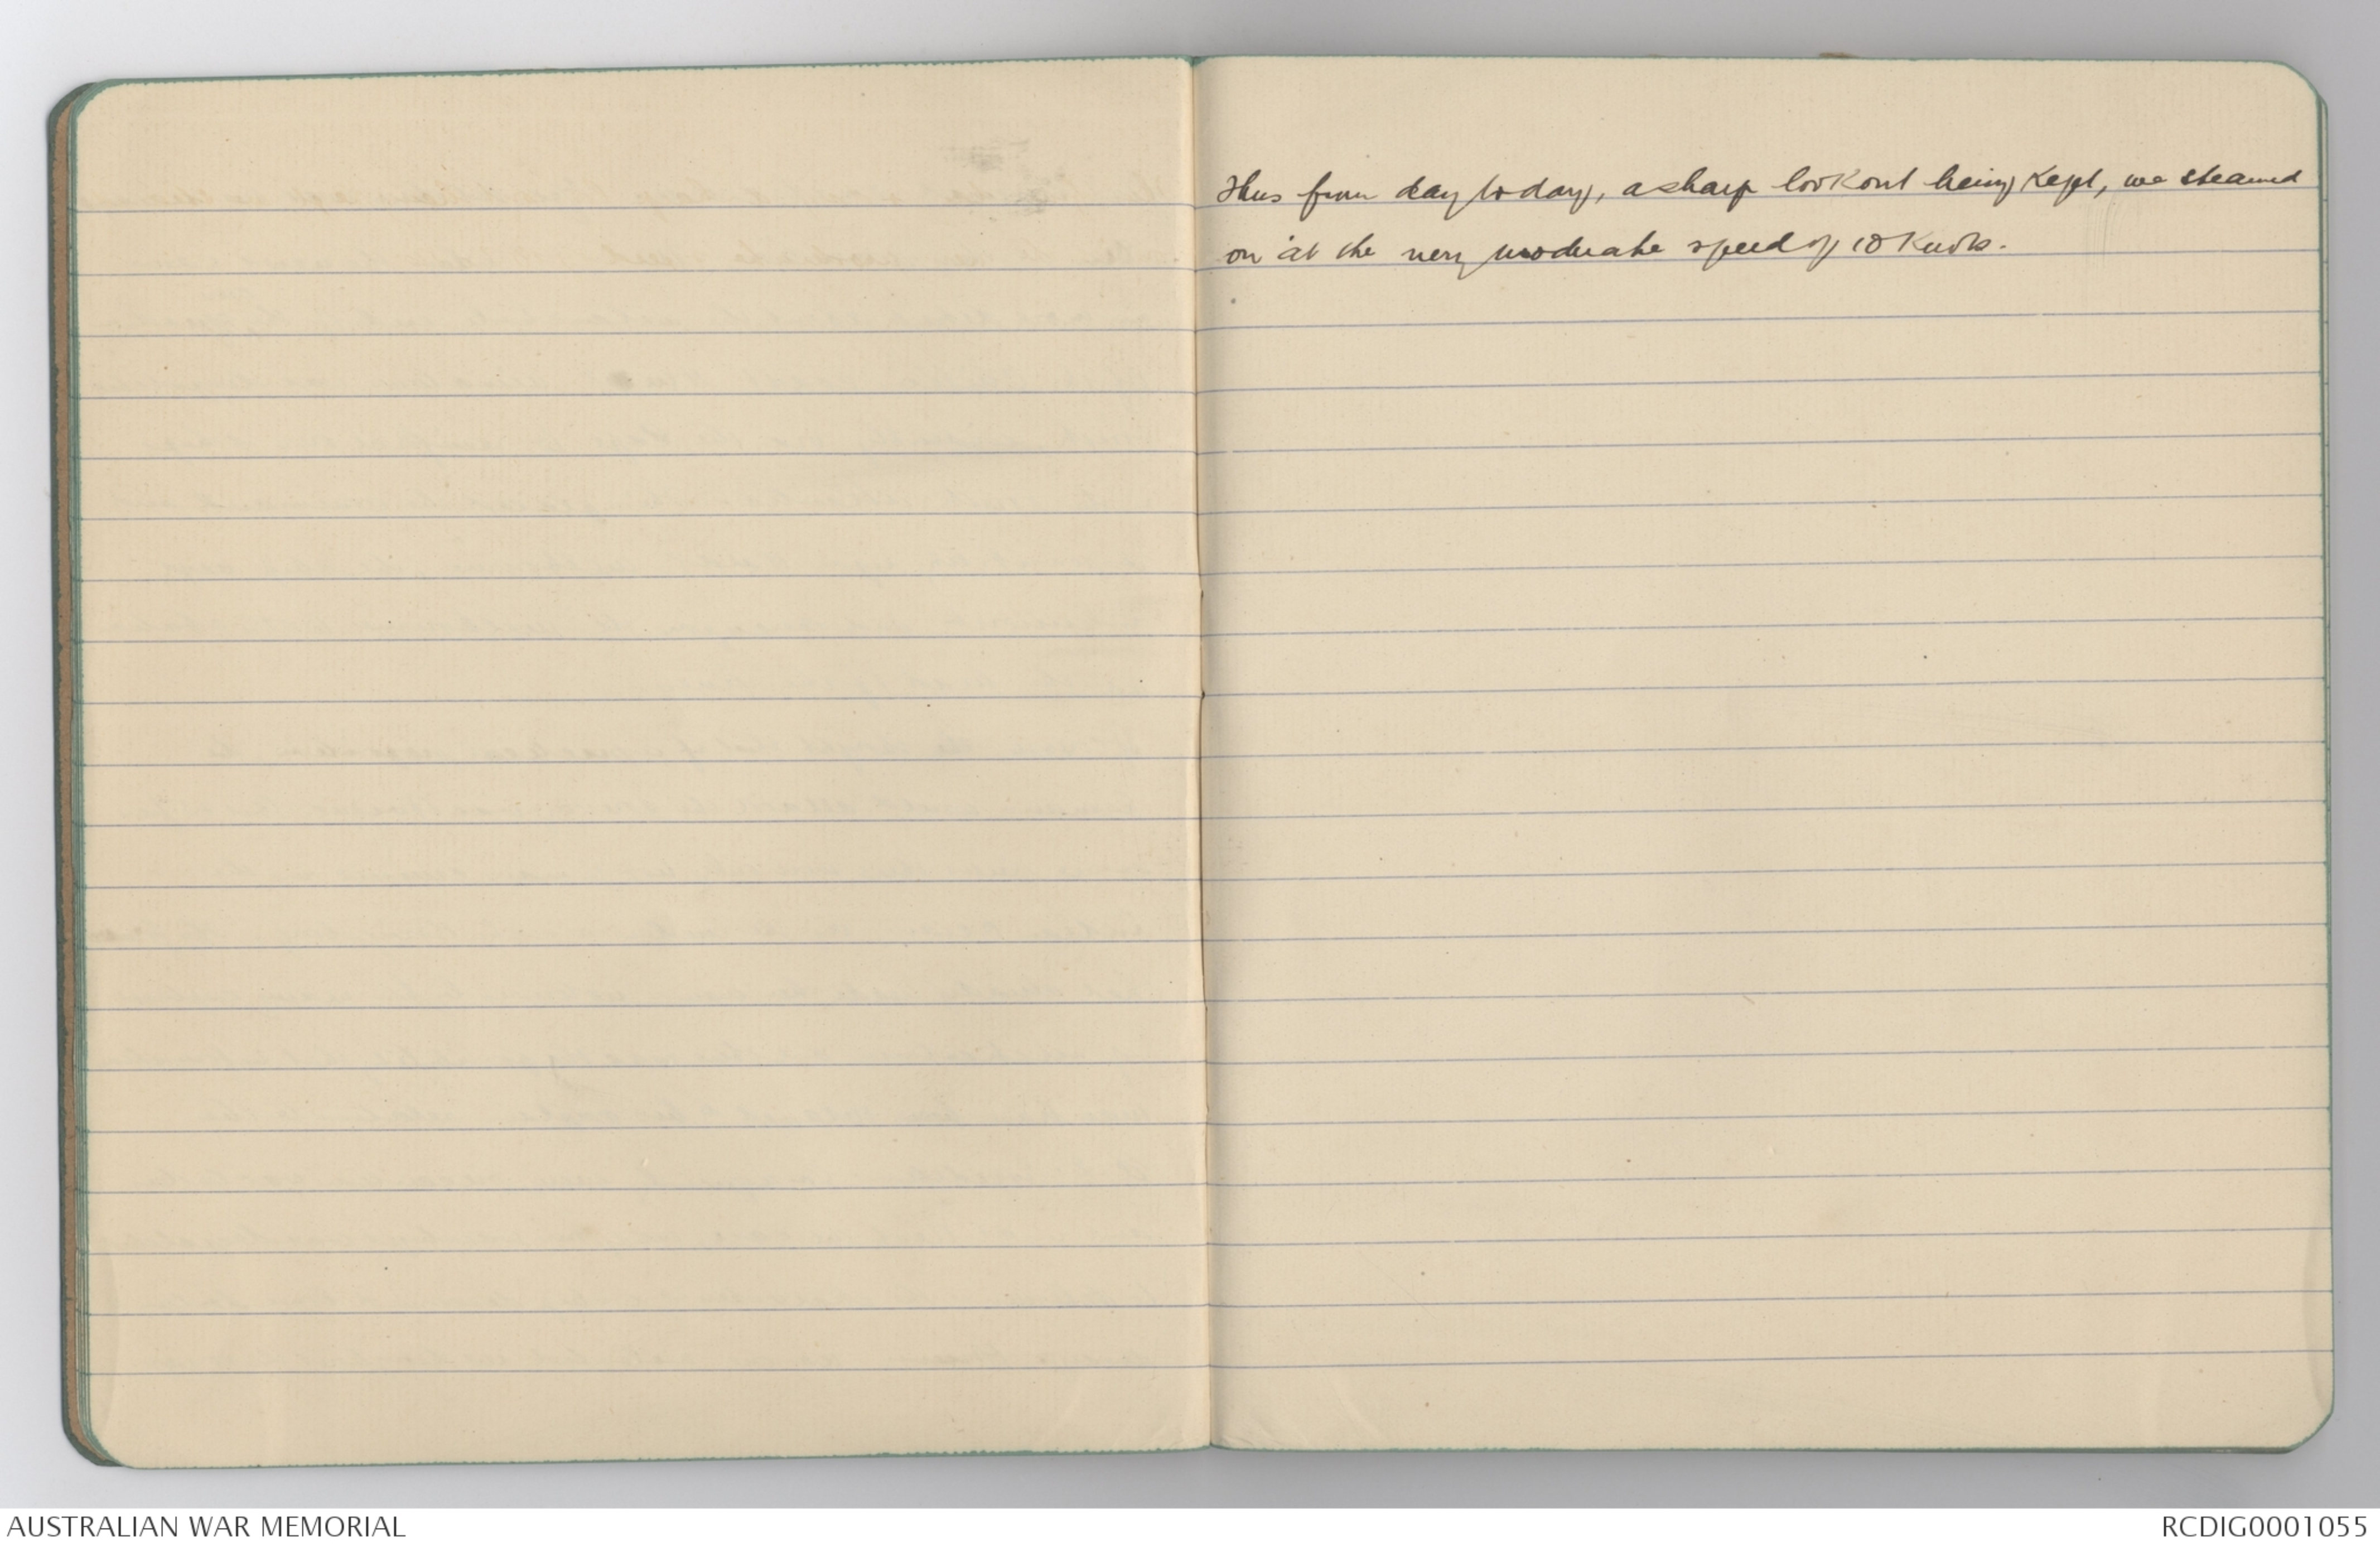 Thus from day to day, a sharp lookout being kept, we steamed
on at the very moderate speed of 10 knots.
AUSTRALIAN WAR MEMORIAL
RCDIG0001055